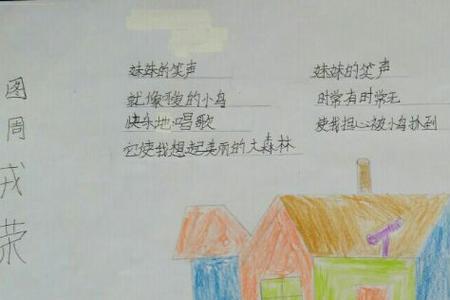 图
周
戎
荣
妹妹的笑声
就像可爱的小鸟
快乐地唱歌
它使我想起美丽的大森林
妹妹的笑声
时常有时常无
使我担心被小鸟扒到